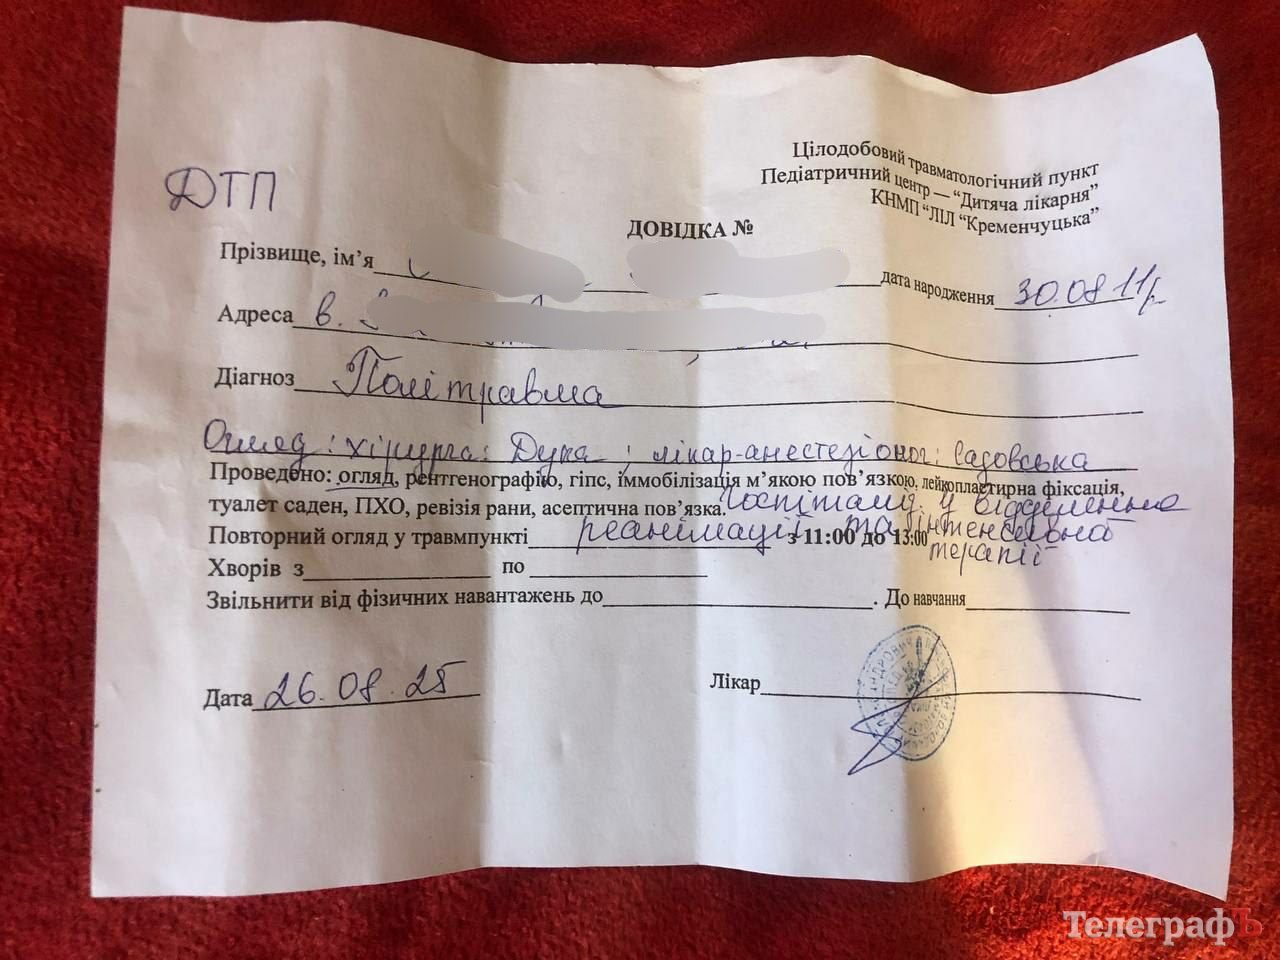 Цілодобовий травматологічний пункт
Педіатричний центр — “Дитяча лікарня”
КНМП “ЛІЛ “Кременчуцька”
ДТП
ДОВІДКА №
Прізвище, ім’я дата народження 30.08 11р
Адреса в.
Діагноз Політравма
Огляд: хірурга: Дука ; лікар-анестезіолог: Садовська
Проведено: огляд, рентгенографію, гіпс, іммобілізація м’якою пов’язкою, лейкопластирна фіксація,
туалет саден, ПХО, ревізія рани, асептична пов’язка. Госпіталіз. у відділення
Повторний огляд у травмпункті реанімації та інтенсивної з 11:00 до 13:00
терапії
Хворів з по
Звільнити від фізичних навантажень до . До навчання
Дата 26.08.25 Лікар
ТелеграфЪ